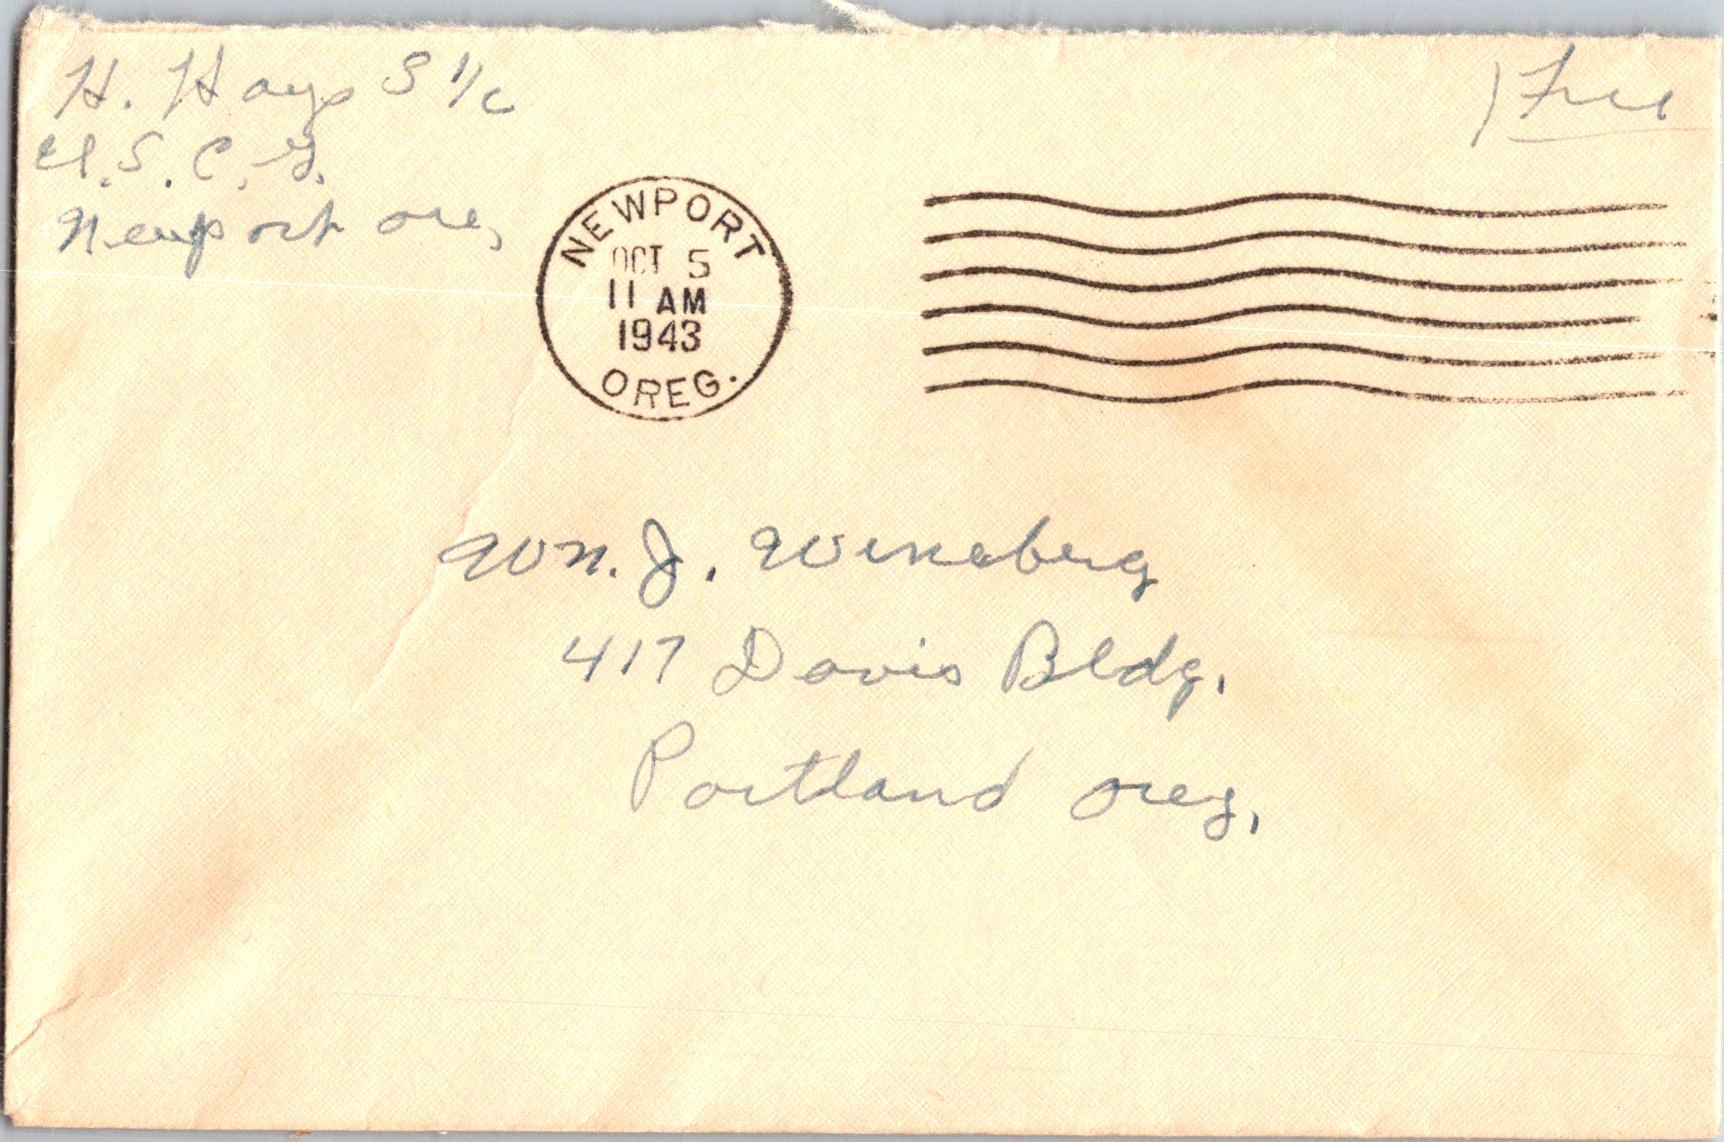 H. Hays S 1/c
U.S.C.G.
Newport Ore,
Free
NEWPORT
OCT 5
11 AM
1943
OREG.
Wm. J. Wineberg
417 Davis Bldg.
Portland Oreg.